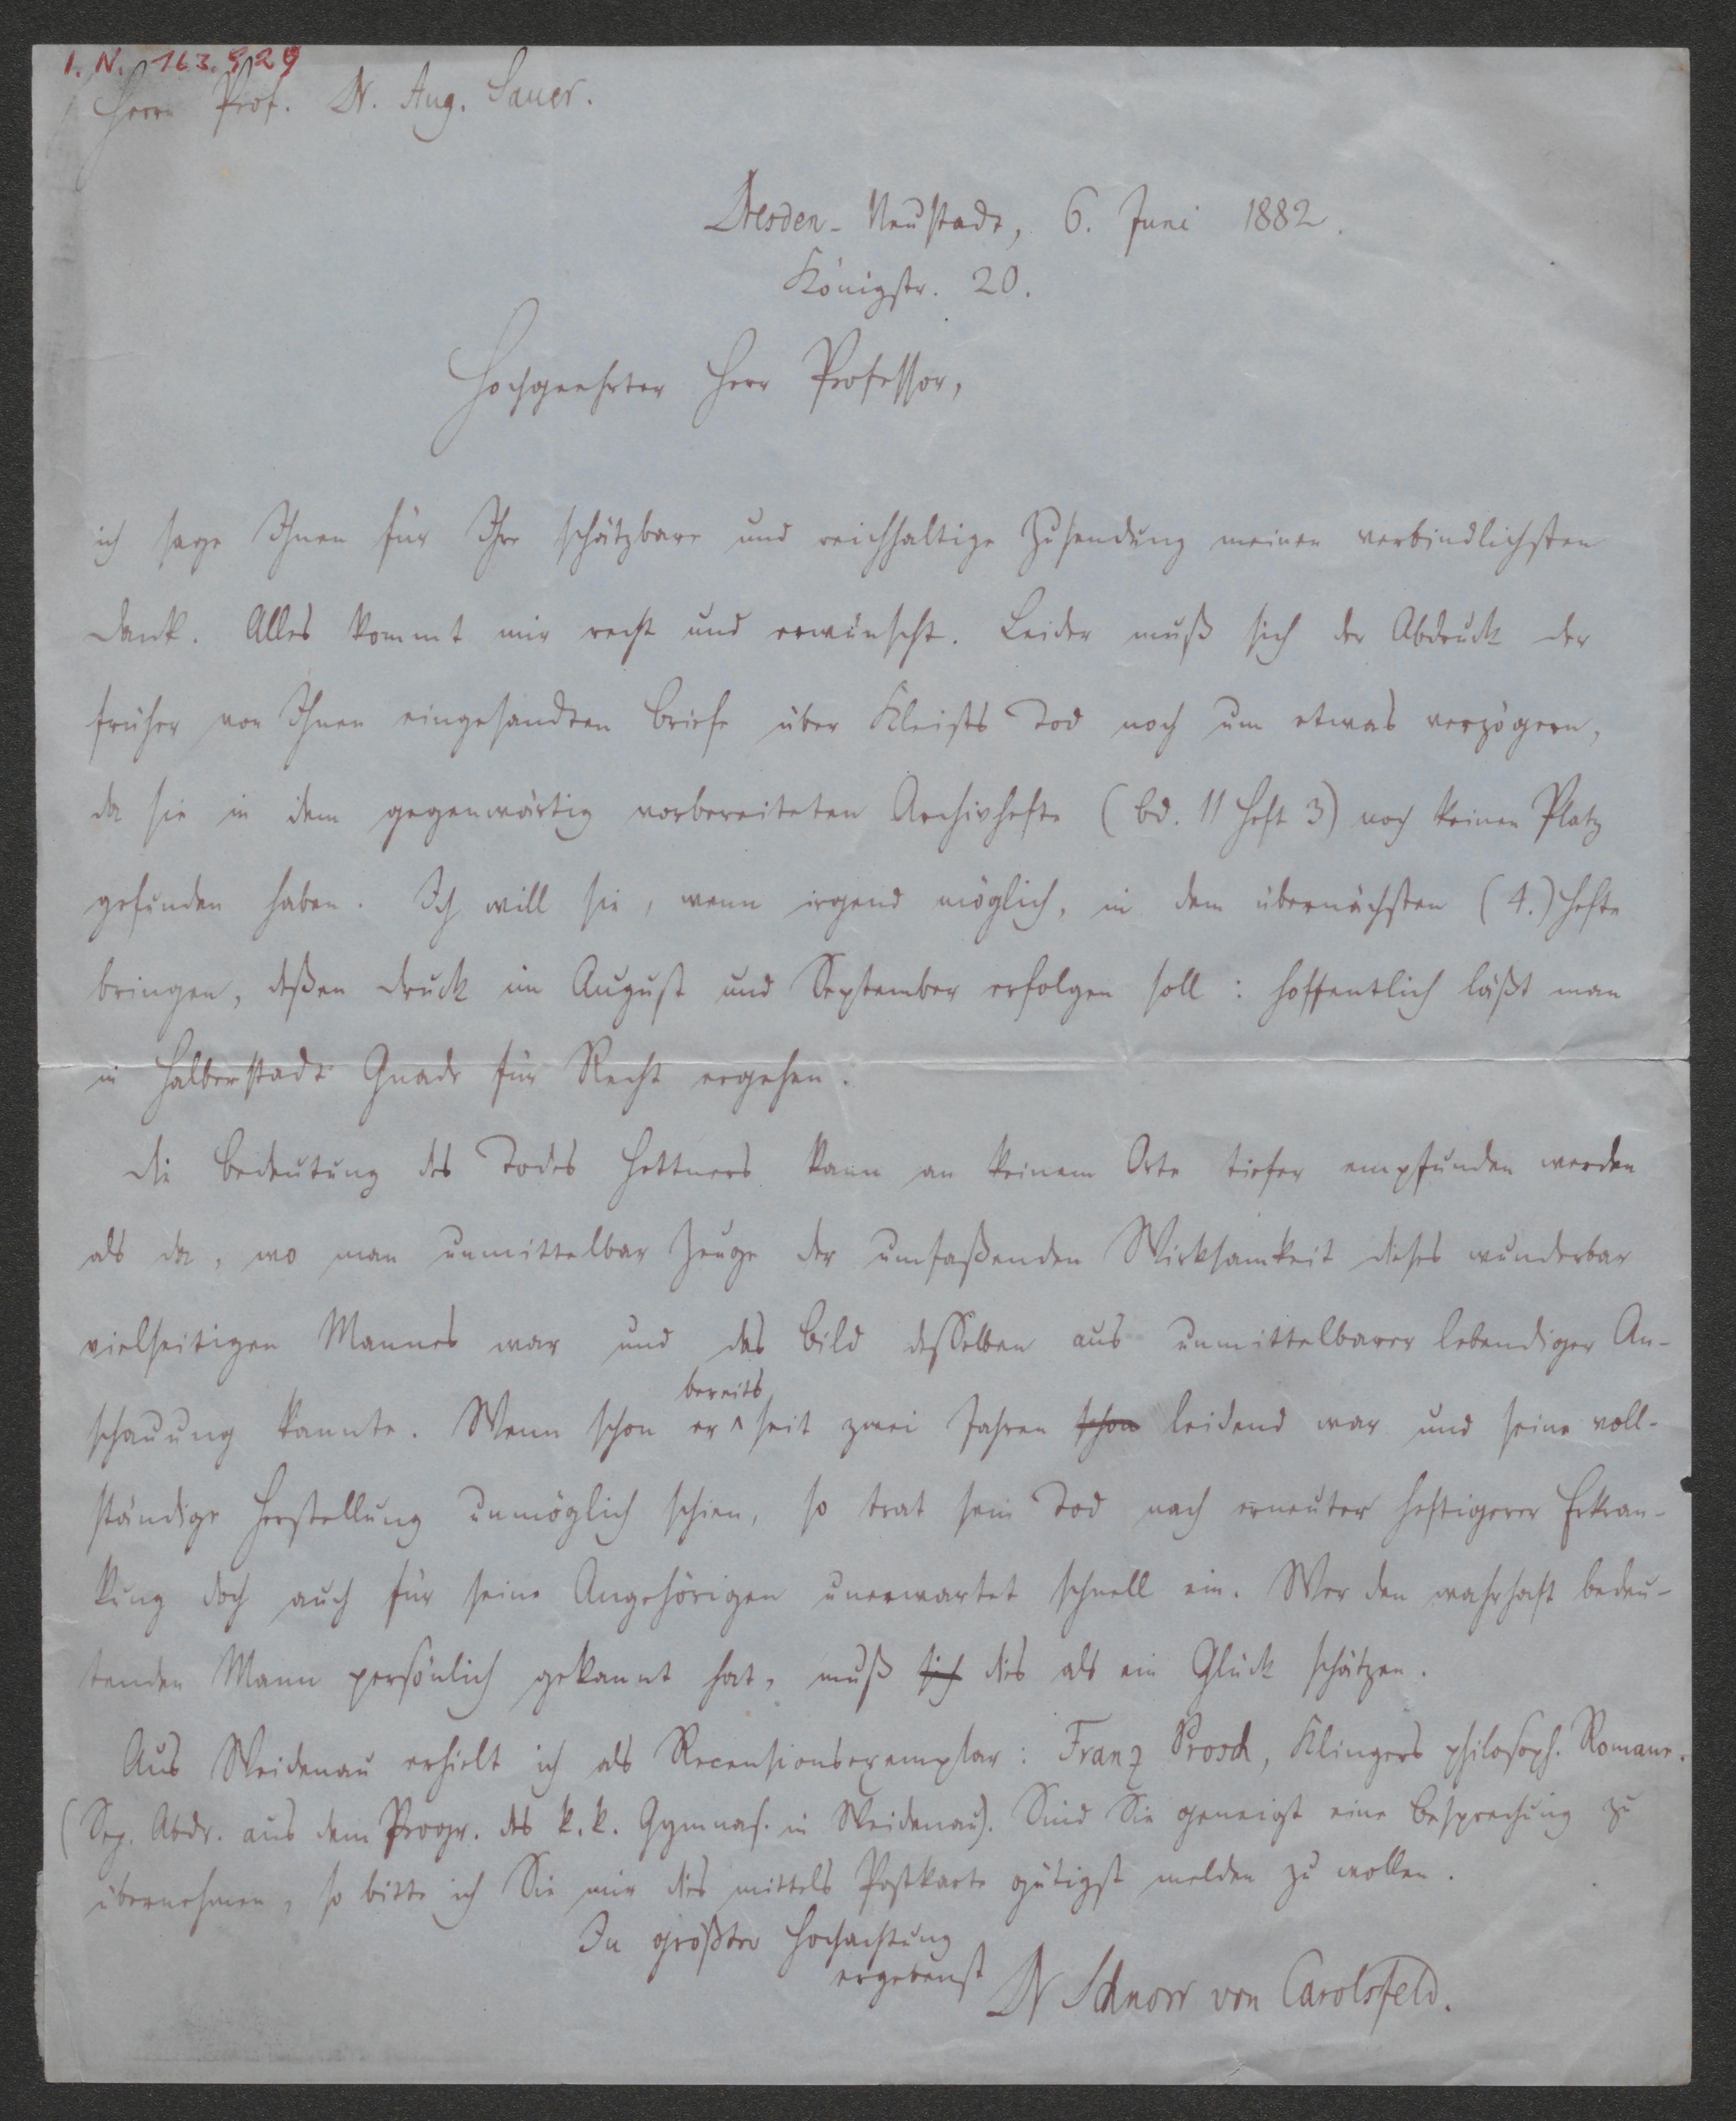 I. N. 163.929
Herrn Prof. Dr. Aug. Sauer.
Dresden-Neustadt, 6. Juni 1882.
Königstr. 20.
Hochgeehrter Herr Professor,
ich sage Ihnen für Ihre schätzbare und reichhaltige Zusendung meinen verbindlichsten
Dank. Alles kommt mir recht und erwünscht. Leider muß sich der Abdruck der
früher von Ihnen eingesandten Briefe über Kleists Tod noch um etwas verzögern,
da sie in dem gegenwärtig vorbereiteten Archivhefte (Bd. 11 Heft 3) noch keinen Platz
gefunden haben. Ich will sie, wenn irgend möglich, in dem übernächsten (4.) Hefte
bringen, deßen Druck im August und September erfolgen soll: hoffentlich läßt man
in Halberstadt Gnade für Recht ergehen.
Die Bedeutung des Todes Hettners kann an keinem Orte tiefer empfunden werden
als da, wo man unmittelbar Zeuge der umfaßenden Wirksamkeit dieses wunderbar
vielseitigen Mannes war und das Bild desselben aus unmittelbarer lebendiger An-
schauung kannte. Wenn schon er bereits seit zwei Jahren schon leidend war und seine voll-
ständige Herstellung unmöglich schien, so trat sein Tod nach erneuter heftigerer Erkran-
kung doch auch für seine Angehörigen unerwartet schnell ein. Wer den wahrhaft bedeu-
tenden Mann persönlich gekannt hat, muß sich dies als ein Glück schätzen.
Aus Weidenau erhielt ich als Recensionsexemplar: Franz Prosch, Klingers philosoph. Romane.
(Sep. Abdr. aus dem Progr. des k. k. Gymnas. in Weidenau). Sind Sie geneigt eine Besprechung zu
übernehmen, so bitte ich Sie mir dies mittels Postkarte gütigst melden zu wollen.
In größter Hochachtung
ergebenst
Dr Schnorr von Carolsfeld.